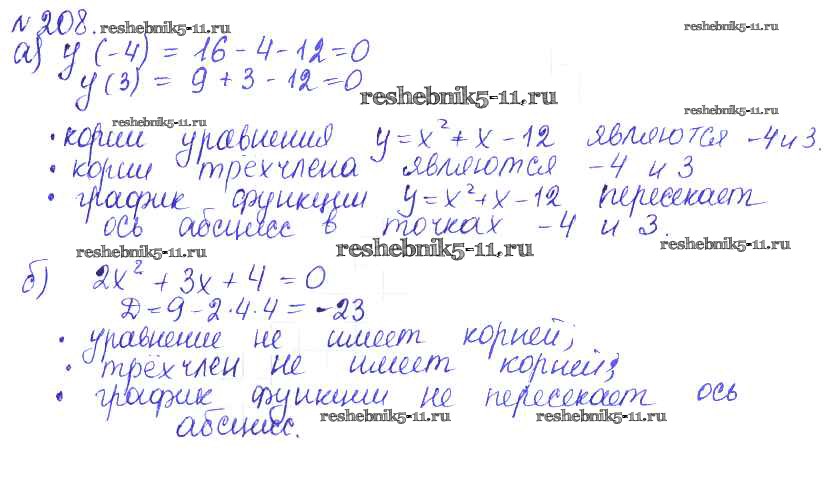 №208. reshebnik5-11.ru reshebnik5-11.ru
а) y(-4) = 16 - 4 - 12 = 0
y(3) = 9 + 3 - 12 = 0
reshebnik5-11.ru
reshebnik5-11.ru reshebnik5-11.ru
• корни уравнения y = x² + x - 12 являются -4 и 3.
• корни трёхчлена являются -4 и 3
• график функции y = x² + x - 12 пересекает
ось абсцисс в точках -4 и 3.
reshebnik5-11.ru reshebnik5-11.ru reshebnik5-11.ru
б) 2x² + 3x + 4 = 0
D = 9 - 2·4·4 = -23
• уравнение не имеет корней;
• трёхчлен не имеет корней;
• график функции не пересекает ось
абсцисс. reshebnik5-11.ru reshebnik5-11.ru